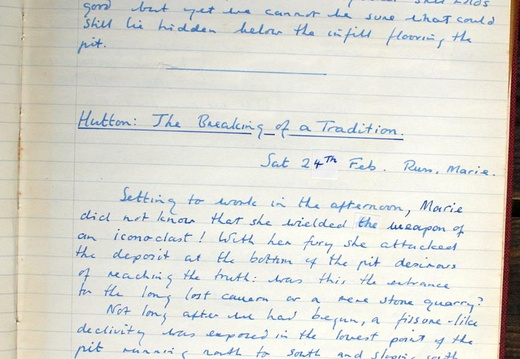 good but yet we cannot be sure what could
still lie hidden below the infill flooring the
pit.
Hutton: The Breaking of a Tradition.
Sat 24TH Feb. Russ, Marie.
Setting to work in the afternoon, Marie
did not know that she wielded the weapon of
an iconoclast! With her fury she attacked
the deposit at the bottom of the pit desirous
of reaching the truth: was this the entrance
to the long lost cavern or a mere stone quarry?
Not long after we had begun, a fissure-like
declivity was exposed in the lowest point of the
pit running north to south and sloping south